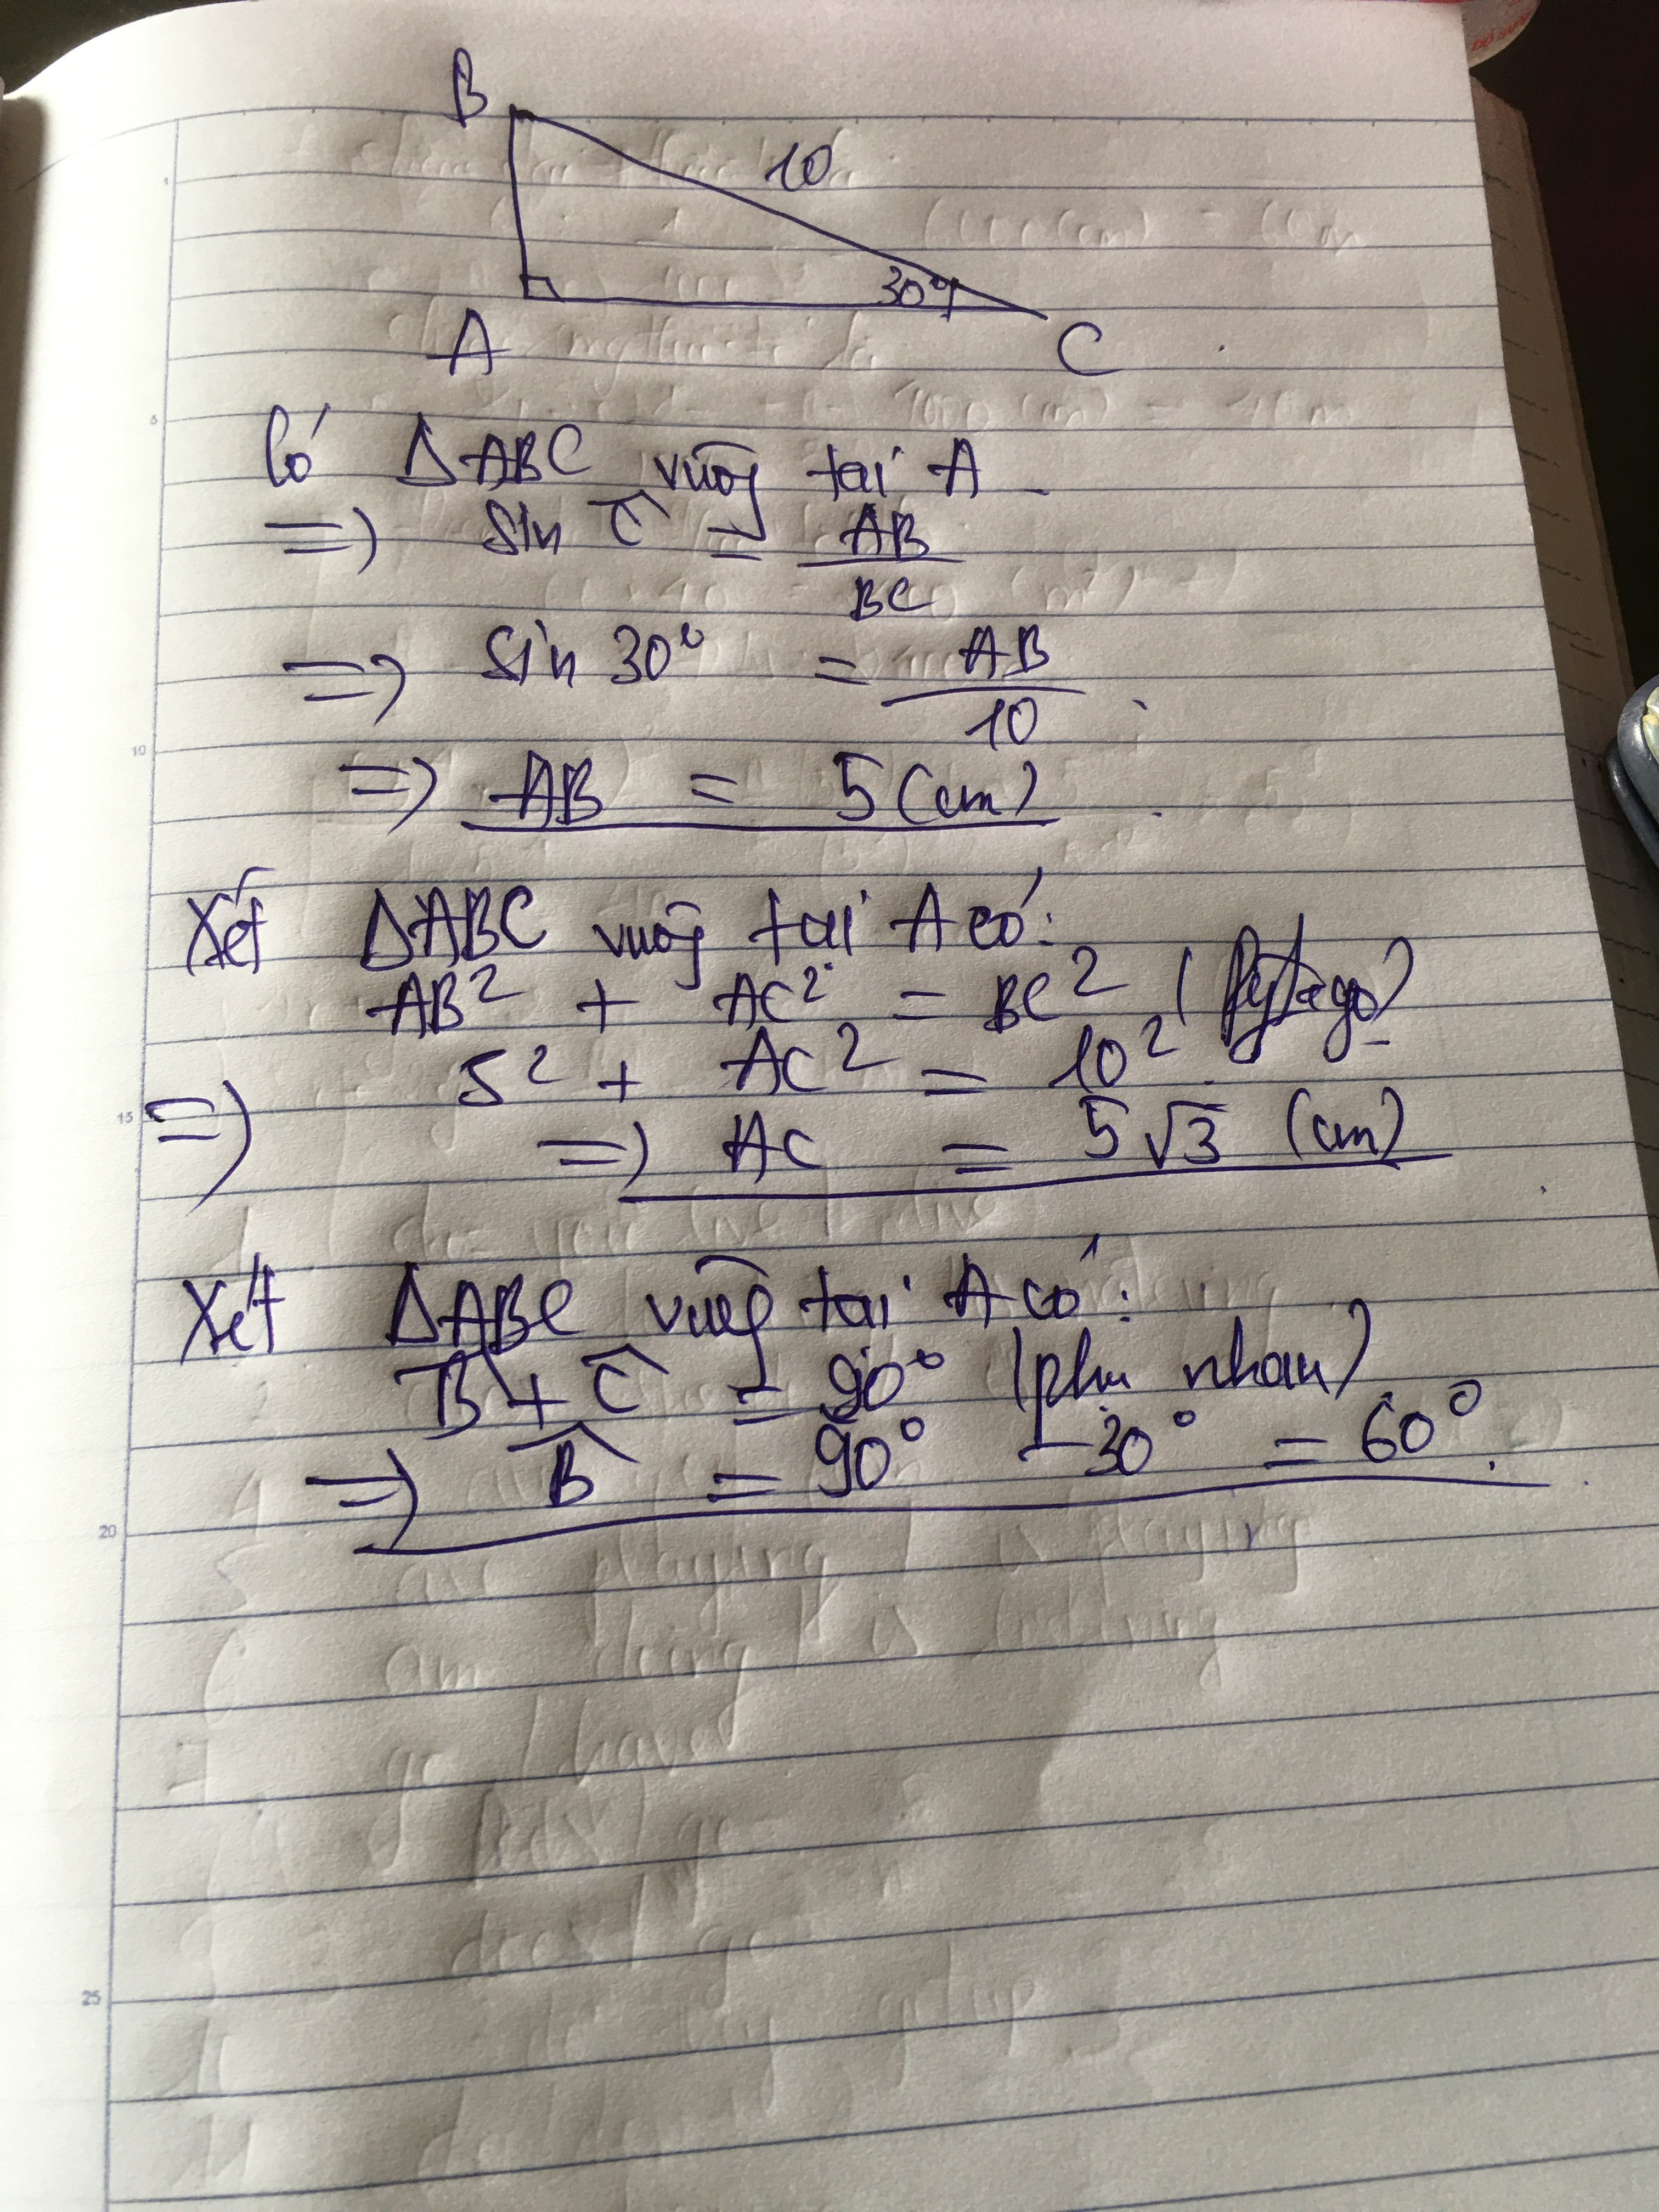 B
10
30°
A
C
Có ΔABC vuông tại A
=> sin Ĉ = AB/BC
=> sin 30° = AB/10
=> AB = 5 (cm)
Xét ΔABC vuông tại A có:
AB² + AC² = BC² (Pytago)
=> 5² + AC² = 10²
=> AC = 5√3 (cm)
Xét ΔABC vuông tại A có:
B̂ + Ĉ = 90° (phụ nhau)
=> B̂ = 90° - 30° = 60°.
1
5
10
15
20
25